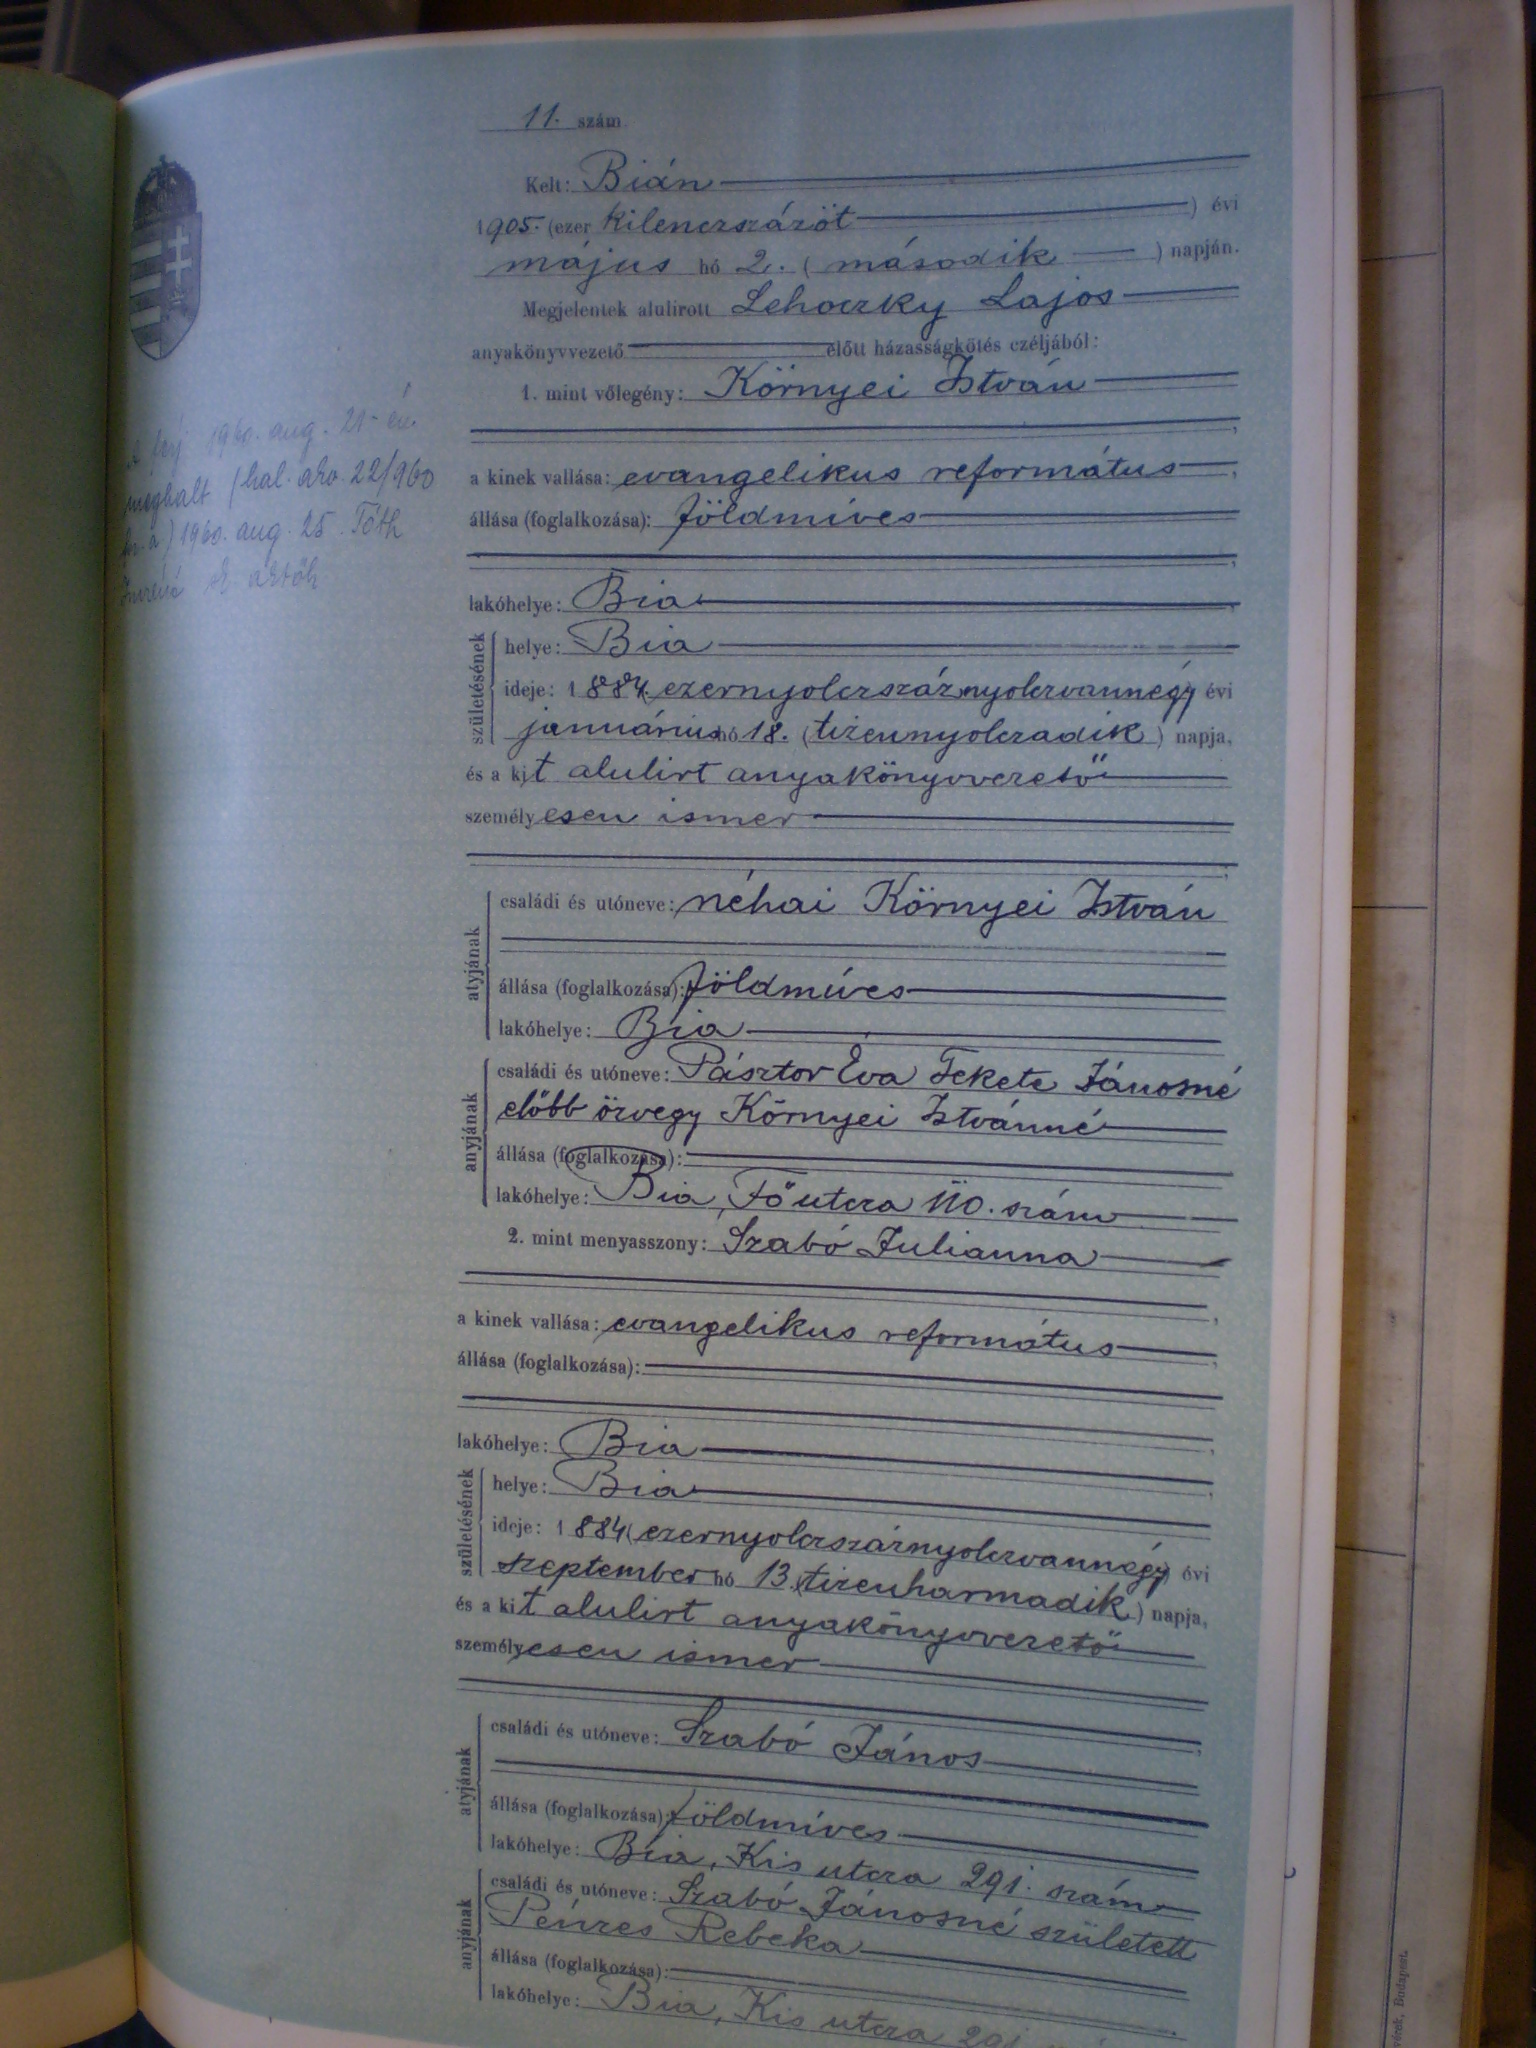 11. szám
Kelt: Bián
1905. (ezer kilenczszázöt) évi
május hó 2. (második) napján.
Megjelentek alulirott Lehoczky Lajos
anyakönyvvezető előtt házasságkötés czéljából:
1. mint vőlegény: Környei István
a kinek vallása: evangelikus református,
állása (foglalkozása): földmíves
lakóhelye: Bia
születésének
helye: Bia
ideje: 1884 (ezernyolczszáznyolczvannégy) évi
januárius hó 18. (tizennyolczadik) napja,
és a kit alulirt anyakönyvvezető
személyesen ismer
atyjának
családi és utóneve: néhai Környei István
állása (foglalkozása): földmíves
lakóhelye: Bia
anyjának
családi és utóneve: Pásztor Éva Fekete Jánosné
előbb özvegy Környei Istvánné
állása (foglalkozása):
lakóhelye: Bia, Fő utcza 110. szám
2. mint menyasszony: Szabó Julianna
a kinek vallása: evangelikus református,
állása (foglalkozása):
lakóhelye: Bia,
születésének
helye: Bia,
ideje: 1884 (ezernyolczszáznyolczvannégy) évi
szeptember hó 13. (tizenharmadik) napja,
és a kit alulirt anyakönyvvezető
személyesen ismer
atyjának
családi és utóneve: Szabó János
állása (foglalkozása): földmíves
lakóhelye: Bia, Kis utcza 291. szám
anyjának
családi és utóneve: Szabó Jánosné született
Pénzes Rebeka
állása (foglalkozása):
lakóhelye: Bia, Kis utcza 291.
A férj 1960. aug. 21-én
meghalt (hal. akv. 22/960
1960. aug. 25. Tóth
Budapest.